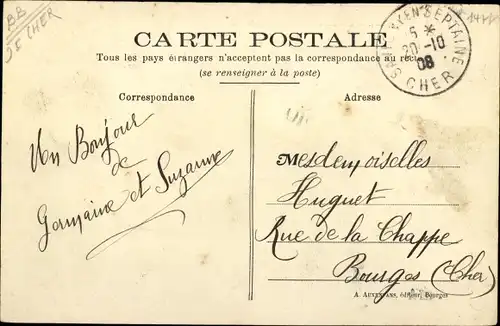 BB
CHER
CARTE POSTALE
Tous les pays étrangers n'acceptent pas la correspondance au
(se renseigner à la poste)
5 *
20-10
08
CHER
Correspondance
Adresse
Un Bonjour
de
Germaine et Suzanne
Mesdemoiselles
Huguet
Rue de la Chappe
Bourges (Cher)
éditeur, Bourges